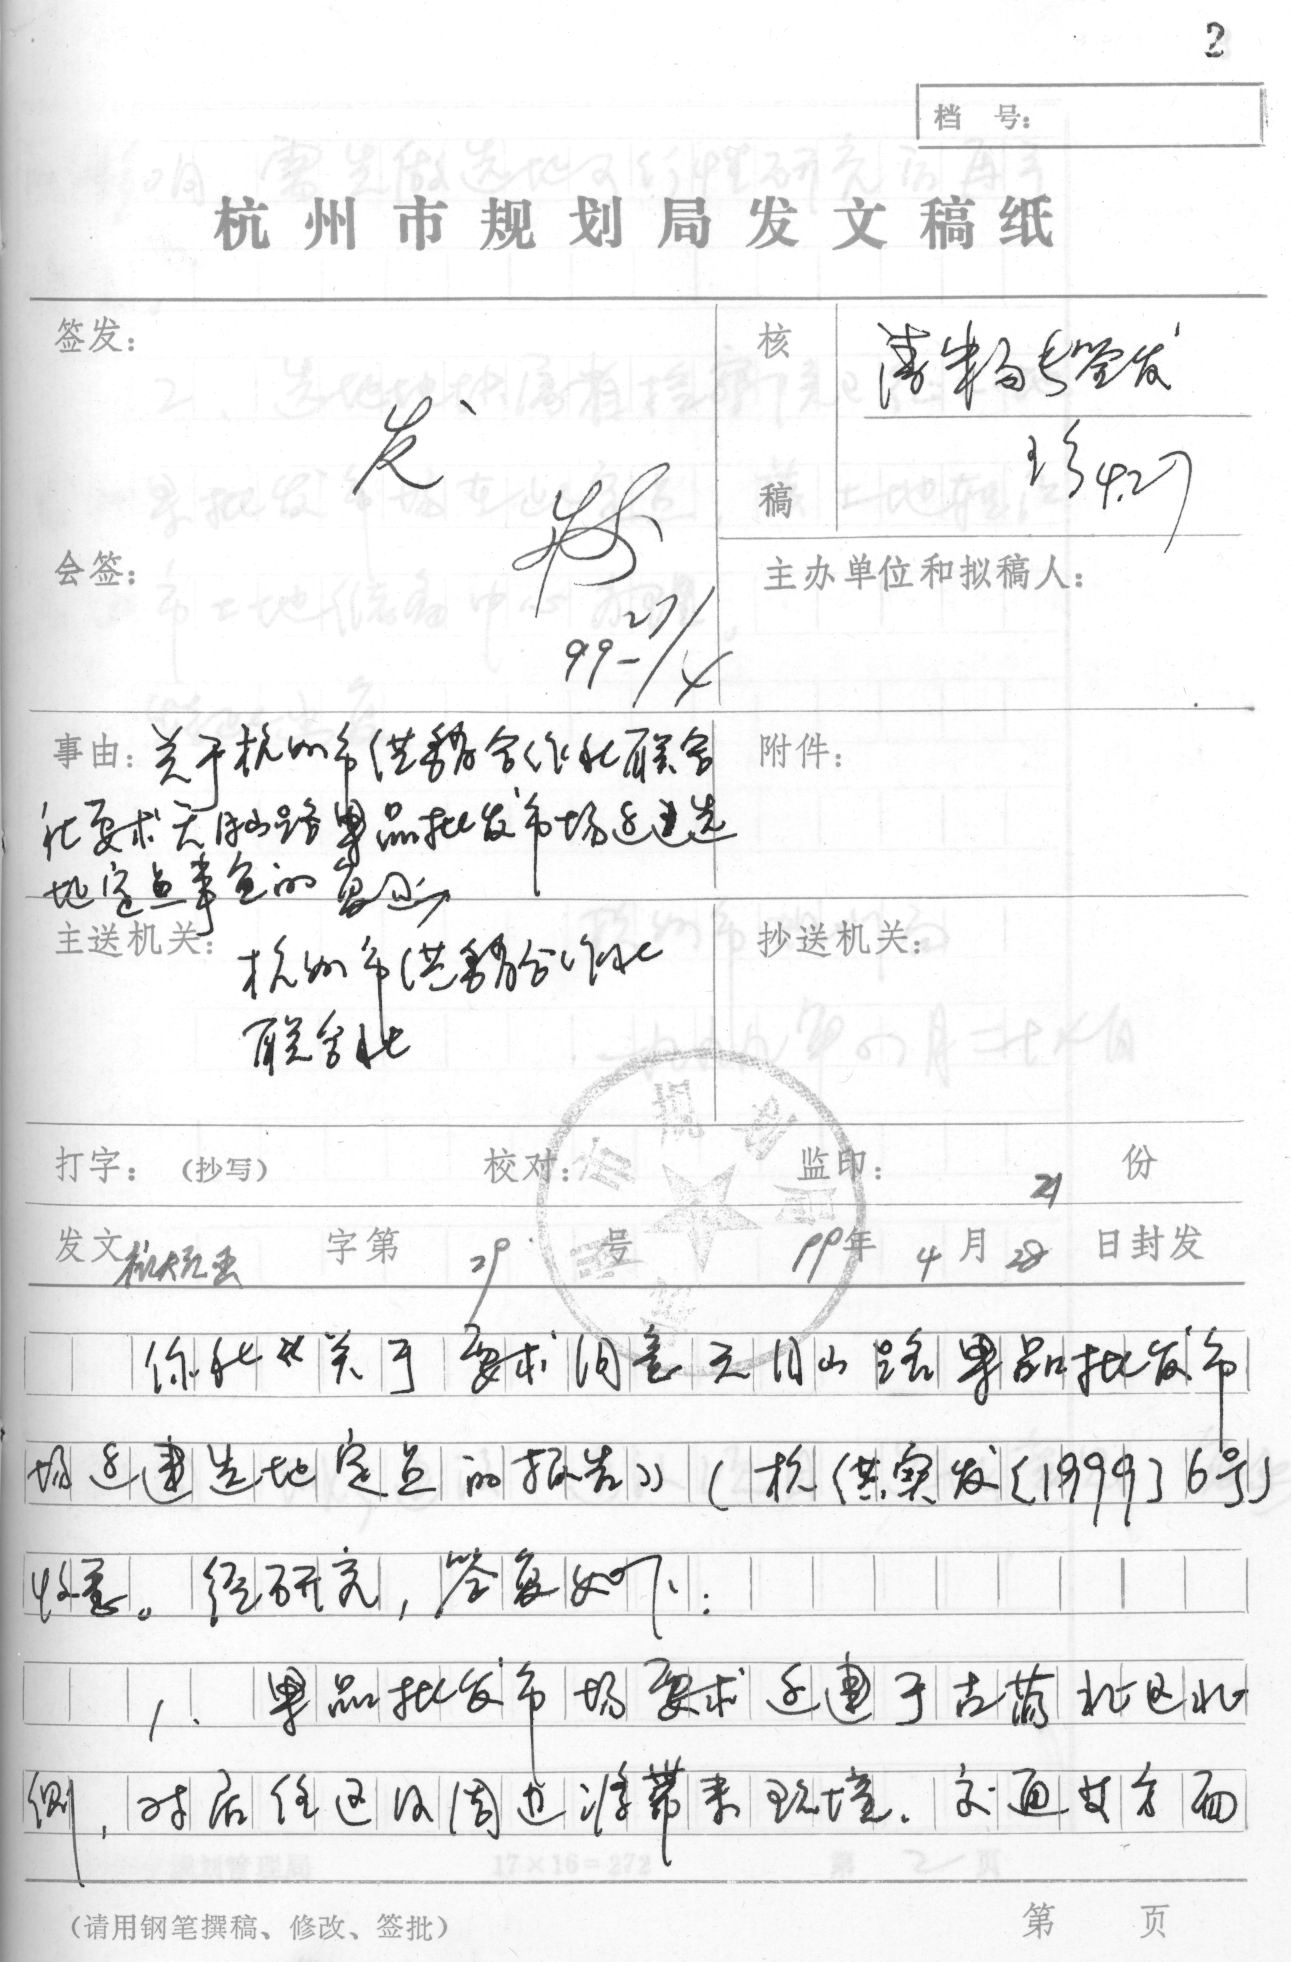 2
档 号:
杭州市规划局发文稿纸
签发:
发
99-27/4
会签:
核稿
请朱局长签发
4.27
主办单位和拟稿人:
事由: 关于杭州市供销合作社联合
社要求天目山路果品批发市场迁建选
地定点事宜的复函
附件:
主送机关: 杭州市供销合作社
联合社
抄送机关:
打字: (抄写) 校对: 监印: 21 份
发文 杭规函 字第 29 号 99年 4月 28 日封发
你社《关于要求同意天目山路果品批发市
场迁建选地定点的报告》(杭供实发〔1999〕6号)
收悉。经研究,答复如下:
1. 果品批发市场要求迁建于古荡北区北
侧,对居住区及周边将带来环境、交通等方面
(请用钢笔撰稿、修改、签批) 第 页